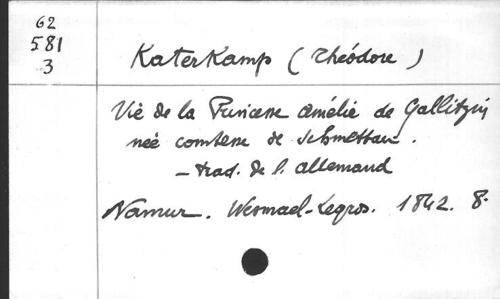 G2
581
3
Katerkamp (Théodore)
Vie de la Princesse Amélie de Gallitzin
née comtesse de Schmettau.
- trad. de l. allemand
Namur. Wesmael-Legros. 1842. 8.